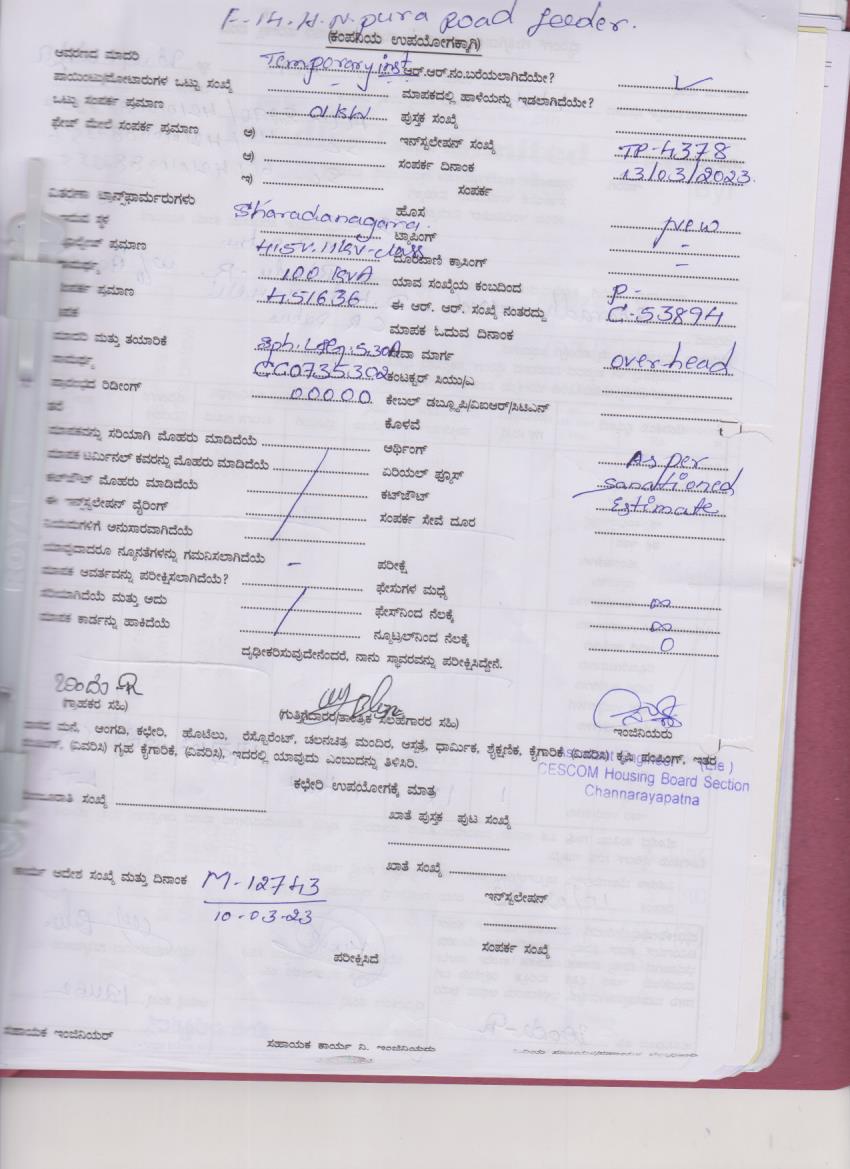 F-14. H.N. pura Road feeder.
(ಕಂಪನಿಯ ಉಪಯೋಗಕ್ಕಾಗಿ)
ಆವರಣದ ಮಾದರಿ Temporary inst ಆರ್.ಆರ್.ನಂ.ಬರೆಯಲಾಗಿದೆಯೇ?
ಪಾಯಿಂಟು/ಮೋಟಾರುಗಳ ಒಟ್ಟು ಸಂಖ್ಯೆ - ಮಾಪಕದಲ್ಲಿ ಹಾಳೆಯನ್ನು ಇಡಲಾಗಿದೆಯೇ?
ಒಟ್ಟು ಸಂಪರ್ಕ ಪ್ರಮಾಣ 01 KW ಪುಸ್ತಕ ಸಂಖ್ಯೆ
ಫೇಸ್ ಮೇಲೆ ಸಂಪರ್ಕ ಪ್ರಮಾಣ ಅ) ಇನ್‌ಸ್ಟಲೇಷನ್ ಸಂಖ್ಯೆ TP-4378
ಆ) ಸಂಪರ್ಕ ದಿನಾಂಕ 13/03/2023.
ಇ) ಸಂಪರ್ಕ
ವಿತರಣಾ ಟ್ರಾನ್ಸ್‌ಫಾರ್ಮರುಗಳು ಹೊಸ new
ಇರುವ ಸ್ಥಳ Sharadanagara. ಟ್ಯಾಪಿಂಗ್ -
ವೋಲ್ಟೇಜ್ ಪ್ರಮಾಣ 415V. 11kv-class ದೂರವಾಣಿ ಕ್ರಾಸಿಂಗ್ -
ಸಾಮರ್ಥ್ಯ 100 kVA ಯಾವ ಸಂಖ್ಯೆಯ ಕಂಬದಿಂದ P-
ಸಂಪರ್ಕ ಪ್ರಮಾಣ 451636 ಈ ಆರ್. ಆರ್. ಸಂಖ್ಯೆ ನಂತರದ್ದು C-53894
ಮಾಪಕ ಮಾಪಕ ಓದುವ ದಿನಾಂಕ
ಮಾದರಿ ಮತ್ತು ತಯಾರಿಕೆ ಸೇವಾ ಮಾರ್ಗ overhead
ಸಾಮರ್ಥ್ಯ CG0735302 ಕಂಟಕ್ಟರ್ ಸಿಯು/ಎ
ಪ್ರಾರಂಭದ ರಿಡೀಂಗ್ 00000 ಕೇಬಲ್ ಡಬ್ಲ್ಯೂಪಿ/ವಿಐಆರ್/ಸಿಟಿಎನ್
ತಟೆ ಕೊಳವೆ
ಮಾಪಕವನ್ನು ಸರಿಯಾಗಿ ಮೊಹರು ಮಾಡಿದೆಯೆ ಆರ್ಥಿಂಗ್ As per
ಮಾಪಕ ಟರ್ಮಿನಲ್ ಕವರನ್ನು ಮೊಹರು ಮಾಡಿದೆಯೆ ಏರಿಯಲ್ ಫ್ಯೂಸ್ sanctioned
ಕಟ್‌ಔಟ್ ಮೊಹರು ಮಾಡಿದೆಯೆ ಕಟ್‌ಔಟ್ Estimate
ಈ ಇನ್‌ಸ್ಟಲೇಷನ್ ವೈರಿಂಗ್ ಸಂಪರ್ಕ ಸೇವೆ ದೂರ
ನಿಯಮಗಳಿಗೆ ಅನುಸಾರವಾಗಿದೆಯೆ
ಯಾವುದಾದರೂ ನ್ಯೂನತೆಗಳನ್ನು ಗಮನಿಸಲಾಗಿದೆಯೆ - ಪರೀಕ್ಷೆ
ಮಾಪಕ ಆವರ್ತವನ್ನು ಪರೀಕ್ಷಿಸಲಾಗಿದೆಯೆ? ಫೇಸುಗಳ ಮಧ್ಯೆ ∞
ಸರಿಯಾಗಿದೆಯೆ ಮತ್ತು ಅದು ಫೇಸ್‌ನಿಂದ ನೆಲಕ್ಕೆ ∞
ಮಾಪಕ ಕಾರ್ಡನ್ನು ಹಾಕಿದೆಯೆ ನ್ಯೂಟ್ರಲ್‌ನಿಂದ ನೆಲಕ್ಕೆ 0
ದೃಢೀಕರಿಸುವುದೇನೆಂದರೆ, ನಾನು ಸ್ಥಾವರವನ್ನು ಪರೀಕ್ಷಿಸಿದ್ದೇನೆ.
(ಗ್ರಾಹಕರ ಸಹಿ) (ಗುತ್ತಿಗೆದಾರರ/ತಾಂತ್ರಿಕ ಸಲಹೆಗಾರರ ಸಹಿ) ಇಂಜಿನಿಯರು
ಮನೆ, ಅಂಗಡಿ, ಕಛೇರಿ, ಹೊಟೆಲು, ರೆಸ್ಟೋರೆಂಟ್, ಚಲನಚಿತ್ರ ಮಂದಿರ, ಆಸ್ಪತ್ರೆ, ಧಾರ್ಮಿಕ, ಶೈಕ್ಷಣಿಕ, ಕೈಗಾರಿಕೆ (ವಿವರಿಸಿ) ಕೃಷಿ ಪಂಪಿಂಗ್, ಇತರ
(ವಿವರಿಸಿ) ಗೃಹ ಕೈಗಾರಿಕೆ, (ವಿವರಿಸಿ), ಇದರಲ್ಲಿ ಯಾವುದು ಎಂಬುದನ್ನು ತಿಳಿಸಿರಿ.
Assistant Engineer (Ele)
CESCOM Housing Board Section
Channarayapatna
ಕಛೇರಿ ಉಪಯೋಗಕ್ಕೆ ಮಾತ್ರ
ಸಂಖ್ಯೆ ಖಾತೆ ಪುಸ್ತಕ ಪುಟ ಸಂಖ್ಯೆ
ಖಾತೆ ಸಂಖ್ಯೆ
ಕಾರ್ಯ ಆದೇಶ ಸಂಖ್ಯೆ ಮತ್ತು ದಿನಾಂಕ M-12743
10-03-23
ಇನ್‌ಸ್ಟಲೇಷನ್
ಸಂಪರ್ಕ ಸಂಖ್ಯೆ
ಪರೀಕ್ಷಿಸಿದೆ
ಸಹಾಯಕ ಇಂಜಿನಿಯರ್ ಸಹಾಯಕ ಕಾರ್ಯ ನಿ. ಇಂಜಿನಿಯರು